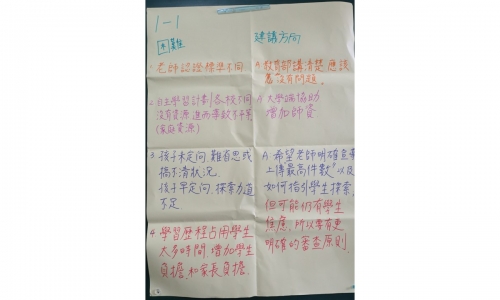 1-1
困難
建議方向
1. 老師認證標準不同
A. 教育部講清楚應該
就沒有問題.
2. 自主學習計劃各校不同
沒有資源進而導致不平等
(家庭資源)
A. 大學端協助
增加師資
3. 孩子未定向 難有思或
搞不清狀況.
孩子早定向. 探索力道
不足
A. 希望老師明確宣導
"上傳最高件數"以及
如何指引學生探索.
但可能仍有學生
焦慮, 所以要有更
明確的審查原則.
4. 學習歷程占用學生
太多時間. 增加學生
負擔. 和家長負擔.